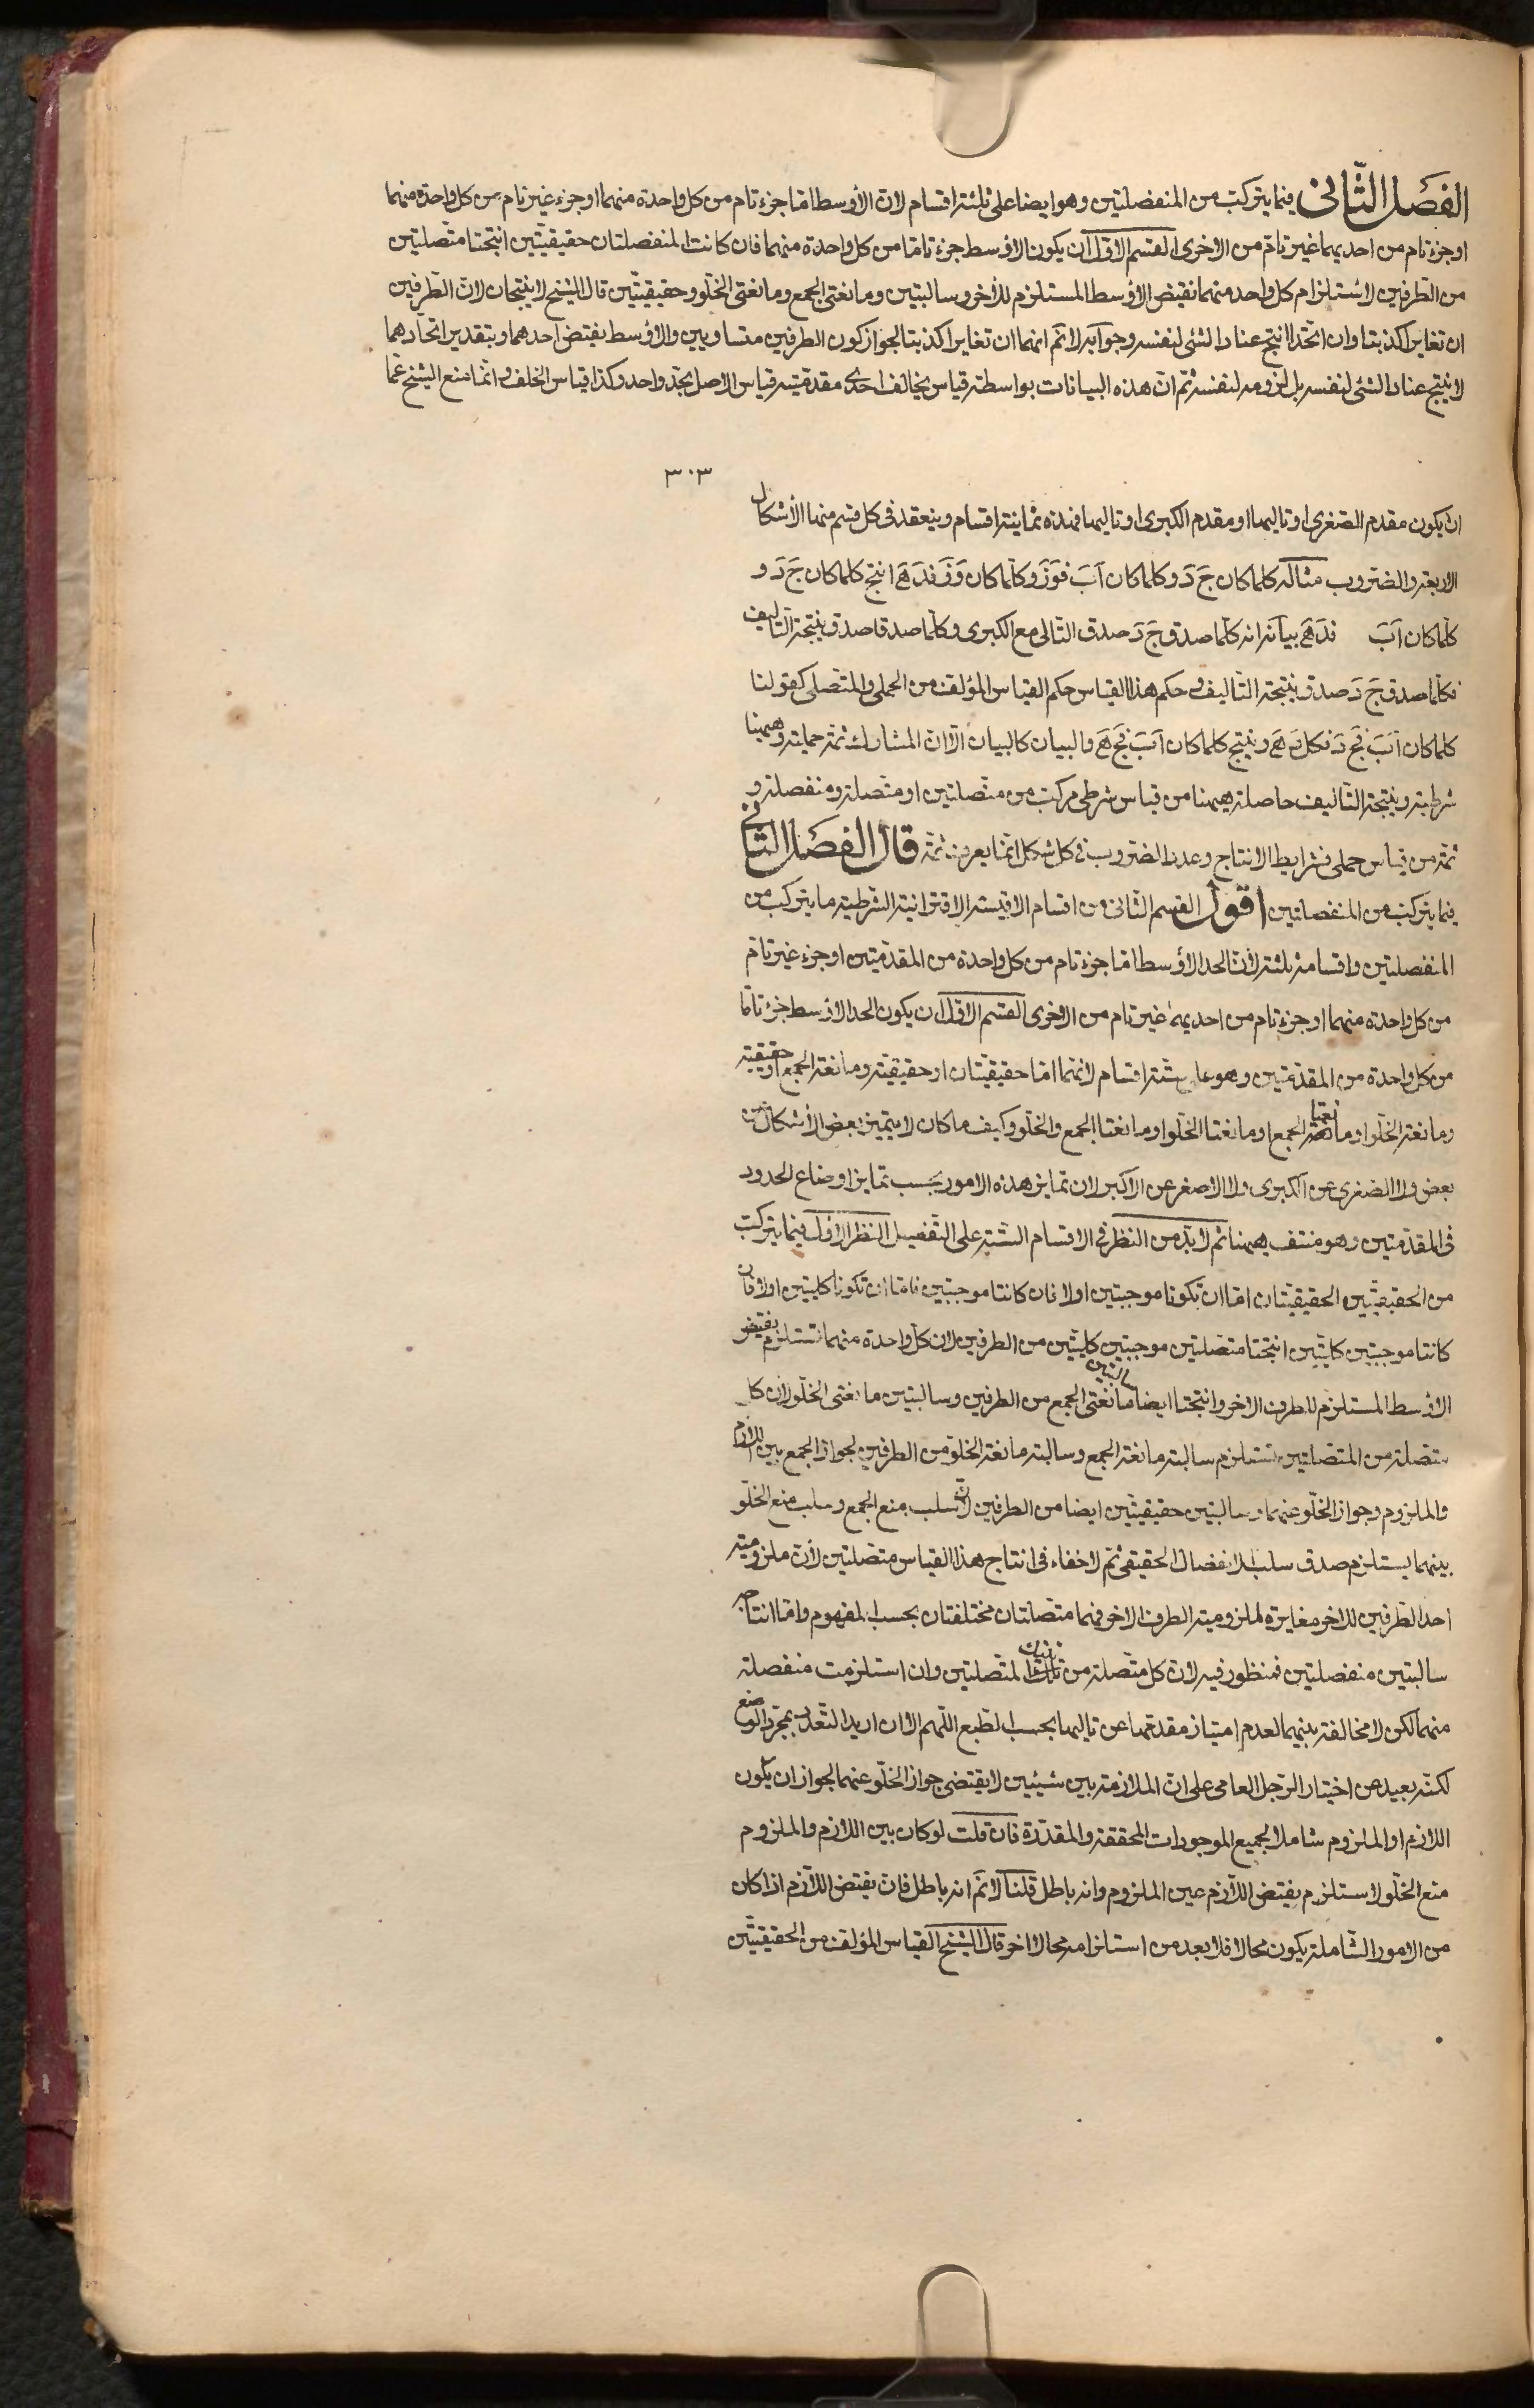 الفصل الثانى فيما يتركب من المنفصلتين وهو ايضا على ثلثة اقسام لان الأوسط امّا جزء تام من كل واحدة منهما او جزء غير تام من كل واحدة منهما
او جزء تام من احديهما غير تامّ من الاخرى القسم الاوّل ان يكون الاوسط جزء تامّا من كل واحدة منهما فان كانت المنفصلتان حقيقيّتين انتجتا متّصلتين
من الطرفين لاستلزام كل واحد منهما نقيض الاوسط المستلزم للأخر وسالبتين ومانعتى الجمع ومانعتى الخلّو وحقيقيّتين قال الشيخ لا ينتجان لان الطرفين
ان تغايرا كذبتا وان اتّحدا انتج عناد الشئ لنفسه وجوابه لا نم انهما ان تغايرا كذبتا لجواز كون الطرفين متساويين والاوسط نقيض احدهما وبتقدير اتحادهما
لا ينتج عناد الشئ لنفسه بل لزومه لنفسه ثم انّ هذه البيانات بواسطة قياس يخالف احدى مقدمتيه قياس الاصل بحدّ واحد وكذا قياس الخلف وانّما منع الشيخ عمّا
٣٠٣
ان يكون مقدم الصغرى او تاليها او مقدم الكبرى او تاليها فهذه ثمانية اقسام وينعقد فى كل قسم منها الأشكال
الاربعة والضروب مثاله كلما كان جَ دَ وكلما كان اَبَ فوَزَ وكلما كان وَزَ فدَهَ انتج كلما كان جَ دَ و
كلما كان اَبَ فدَهَ بيانه انه كلّما صدق جَ دَ صدق التّالى مع الكبرى وكلّما صدقا صدق نتيجة التّاليف
فكلّما صدق جَ دَ صدق نتيجة التّاليف وحكم هذا القياس حكم القياس المؤلف من الحملى والمتّصل كقولنا
كلما كان اَبَ فجَ دَ فكل دَهَ وينتج كلما كان اَبَ فجَ هَ والبيان كالبيان الّا انّ المشارك ثمّة حملية وههنا
شرطية ونتيجة التّاليف حاصلة ههنا من قياس شرطى مركب من متّصلتين او متّصلة ومنفصلة و
ثمّة من قياس حملى فشرايط الانتاج وعدد الضروب فى كل شكل انّما يعرف ثمّة قال الفصل الثانى
فيما يتركب من المنفصلتين اقول القسم الثانى من اقسام الاقيسة الاقترانية الشرطية ما يتركب من
المنفصلتين واقسامه ثلثة لأنّ الحد الأوسط امّا جزء تام من كل واحدة من المقدّمتين او جزء غير تامّ
من كل واحدة منهما او جزء تام من احديهما غير تام من الاخرى القسم الاوّل ان يكون الحد الاوسط جزء تامّا
من كل واحدة من المقدّمتين وهو على ستّة اقسام لانّهما امّا حقيقيّتان او حقيقيّة ومانعة الجمع او حقيقية
ومانعة الخلّو او مانعتا الجمع او مانعتا الخلّو او مانعتا الجمع والخلّو وكيف ما كان لا يتميّز بعض الأشكال من
بعض ولا الصغرى عن الكبرى ولا الاصغر عن الاكبر لان تمايز هذه الامور بحسب تمايز اوضاع الحدود
فى المقدّمتين وهو منتف ههنا ثم لا بدّ من النظر فى الاقسام الستّة على التّفصيل النظر الاوّل فيما يتركب
من الحقيقيّتين الحقيقيّتان امّا ان تكونا موجبتين او لا فان كانتا موجبتين فامّا ان تكونا كليتين او لا فان
كانتا موجبتين كليّتين انتجتا متّصلتين موجبتين كليّتين من الطرفين لان كل واحدة منهما تستلزم نقيض
الاوسط المستلزم للطرف الاخر وانتجتا ايضا سالبتين مانعتى الجمع من الطرفين وسالبتين مانعتى الخلّو لان كل
متّصلة من المتّصلتين تستلزم سالبة مانعة الجمع وسالبة مانعة الخلّو من الطرفين لجواز الجمع بين اللازم
والملزوم وجواز الخلّو عنهما وسالبتين حقيقيّتين ايضا من الطرفين لانّ سلب منع الجمع وسلب منع الخلّو
بينهما يستلزم صدق سلب الانفصال الحقيقى ثمّ لا خفاء فى انتاج هذا القياس متّصلتين لأن ملزومية
احد الطرفين للاخر مغايرة لملزومية الطرف الاخر فهما متصلتان مختلفتان بحسب المفهوم وامّا انتاجه
سالبتين منفصلتين فمنظور فيه لان كل متّصلة من المتّصلتين وان استلزمت منفصلة
منهما لكن لا مخالفة بينهما لعدم امتياز مقدّمها عن تاليها بحسب الطبع اللّهم الا ان اريد التّعدد بمجرّد الوضع
لكنّه بعيد عن اختيار الرّجل العامى على انّ الملازمة بين شيئين لا يقتضى جواز الخلّو عنهما لجواز ان يكون
اللازم او الملزوم شاملا لجميع الموجودات المحققة والمقدّرة فان قلت لو كان بين اللازم والملزوم
منع الخلّو لاستلزم نقيض اللّازم عين الملزوم وانه باطل قلنا لا نم انه باطل فانّ نقيض اللّازم اذا كان
من الامور الشّاملة يكون محالا فلا بعد من استلزامه محالا اخر قال الشيخ القياس المؤلف من الحقيقيّتين